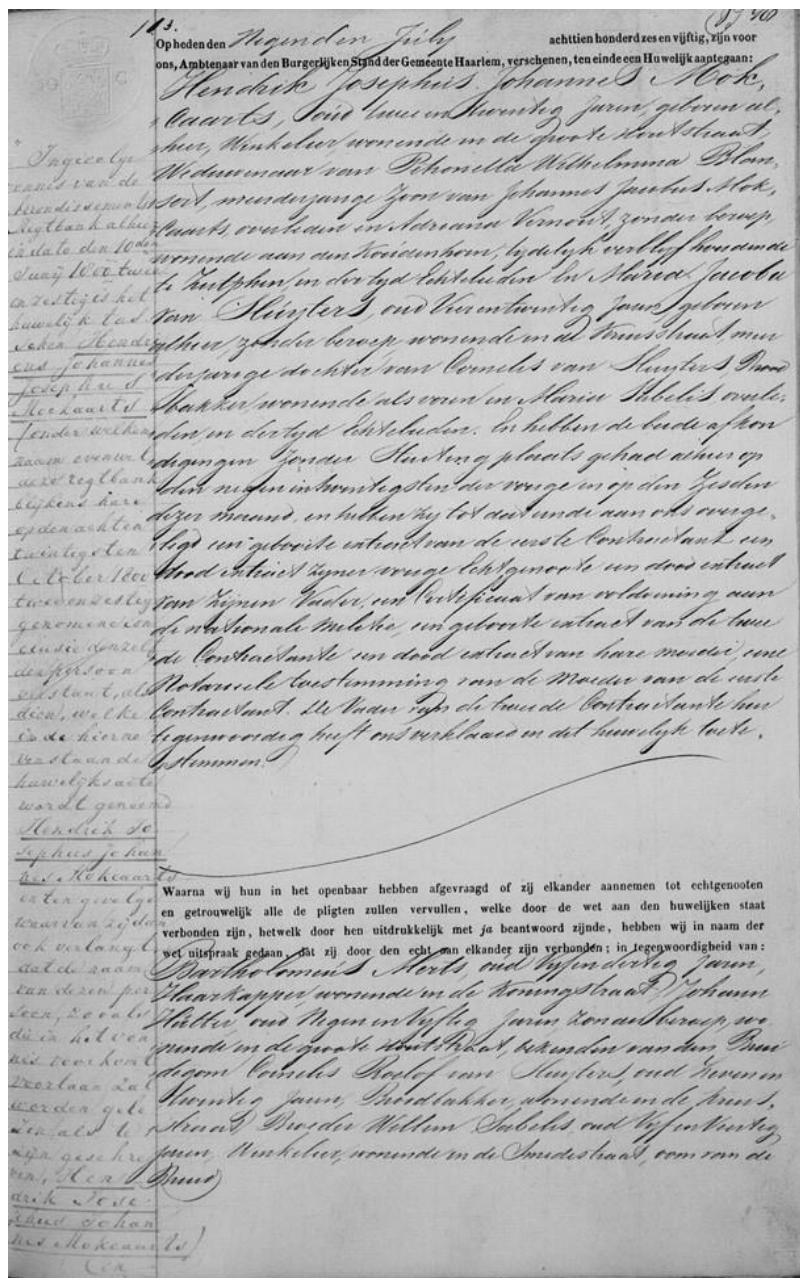 113.
Op heden den Negenden Julij achttien honderd zes en vijftig, zijn voor
ons, Ambtenaar van den Burgerlijken Stand der Gemeente Haarlem, verschenen, ten einde een Huwelijk aantegaan:
Hendrik Josephus Johannes Mok,
Caarts, oud twee en twintig Jaren, geboren al,
hier, Winkelier wonende in de groote Houtstraat,
Weduwenaar van Petronella Wilhelmina Blan,
sort, meerderjarige Zoon van Johannes Jacobus Mok,
Caarts, overleden en Adriana Vernout, zonder beroep,
wonende aan den Koudenhorn, tijdelijk verblijf houdende
te Zutphen, in der tijd Echtelieden En Maria Jacoba
van Sluijters, oud Vierentwintig Jaren, geboren
alhier, zonder beroep, wonende in de Kruisstraat, meer
derjarige dochter van Cornelis van Sluijters, Brood
bakker, wonende als voren en Maria Sabelis overle,
den in der tijd Echtelieden. En hebben de beide afkon
digingen zonder Stuiting plaats gehad alhier op
den negen en twintigsten der vorige en op den Zesden
dezer maand, en hebben zij tot dat einde aan ons overge,
legd een geboorte extract van de eerste Contractant een
dood extract zijner vorige Echtgenoote een dood extract
van zijnen Vader, een Certificaat van voldoening aan
de nationale Militie, een geboorte extract van de twee
de Contractante een dood extract van hare moeder, eene
Notarieele toestemming van de Moeder van de eerste
Contractant. De Vader van de tweede Contractante hier
tegenwoordig heeft ons verklaard in dit huwelijk toete,
stemmen.
Waarna wij hun in het openbaar hebben afgevraagd of zij elkander aannemen tot echtgenooten
en getrouwelijk alle de pligten zullen vervullen, welke door de wet aan den huwelijken staat
verbonden zijn, hetwelk door hen uitdrukkelijk met ja beantwoord zijnde, hebben wij in naam der
wet uitspraak gedaan, dat zij door den echt aan elkander zijn verbonden; in tegenwoordigheid van:
Bartholomeus Morts, oud Vijfendertig Jaren,
Haarkapper, wonende in de Koningstraat, Johann
oud Negen en Vijftig Jaren zonder beroep, wo,
nende in de groote Houtstraat, bekenden van den Brui
degom Cornelis Roelof van Sluijters, oud Zeven en
twintig Jaren, Broodbakker, wonende in de Kruis,
straat, Broeder Willem Sabelis, oud Vijf en Veertig
Jaren, Winkelier, wonende in de Smedestraat, oom van de
Bruid
Ingevolge
vonnis van de
Arrondissements
Regtbank alhier
in dato den 10den
Junij 1800 twee
en zestig is het
huwelijk tus
schen Hendri
cus Johannes
Josephus
Mockaarts
(onder welken
naam evenwel
deze regtbank
blijkens hare
op den achten
twintigsten
October 1800
twee en zestig
genomene con
clusie denzelf
den persoon
verstaat, als
dien, welke
in de hierne
venstaande
huwelijksacte
wordt genoemd
Hendrik Jo
sephus Johan
nes Mokcaarts
en ten gevolge
waarvan zij dan
ook verlangt
dat de naam
van dezen per
soon, zooals
die in het von
nis voorkomt
voortaan zal
worden gele
zen, als te
zijn geschre
ven, Hen
drik Jose
phus Johan
nes Mokcaarts)
en